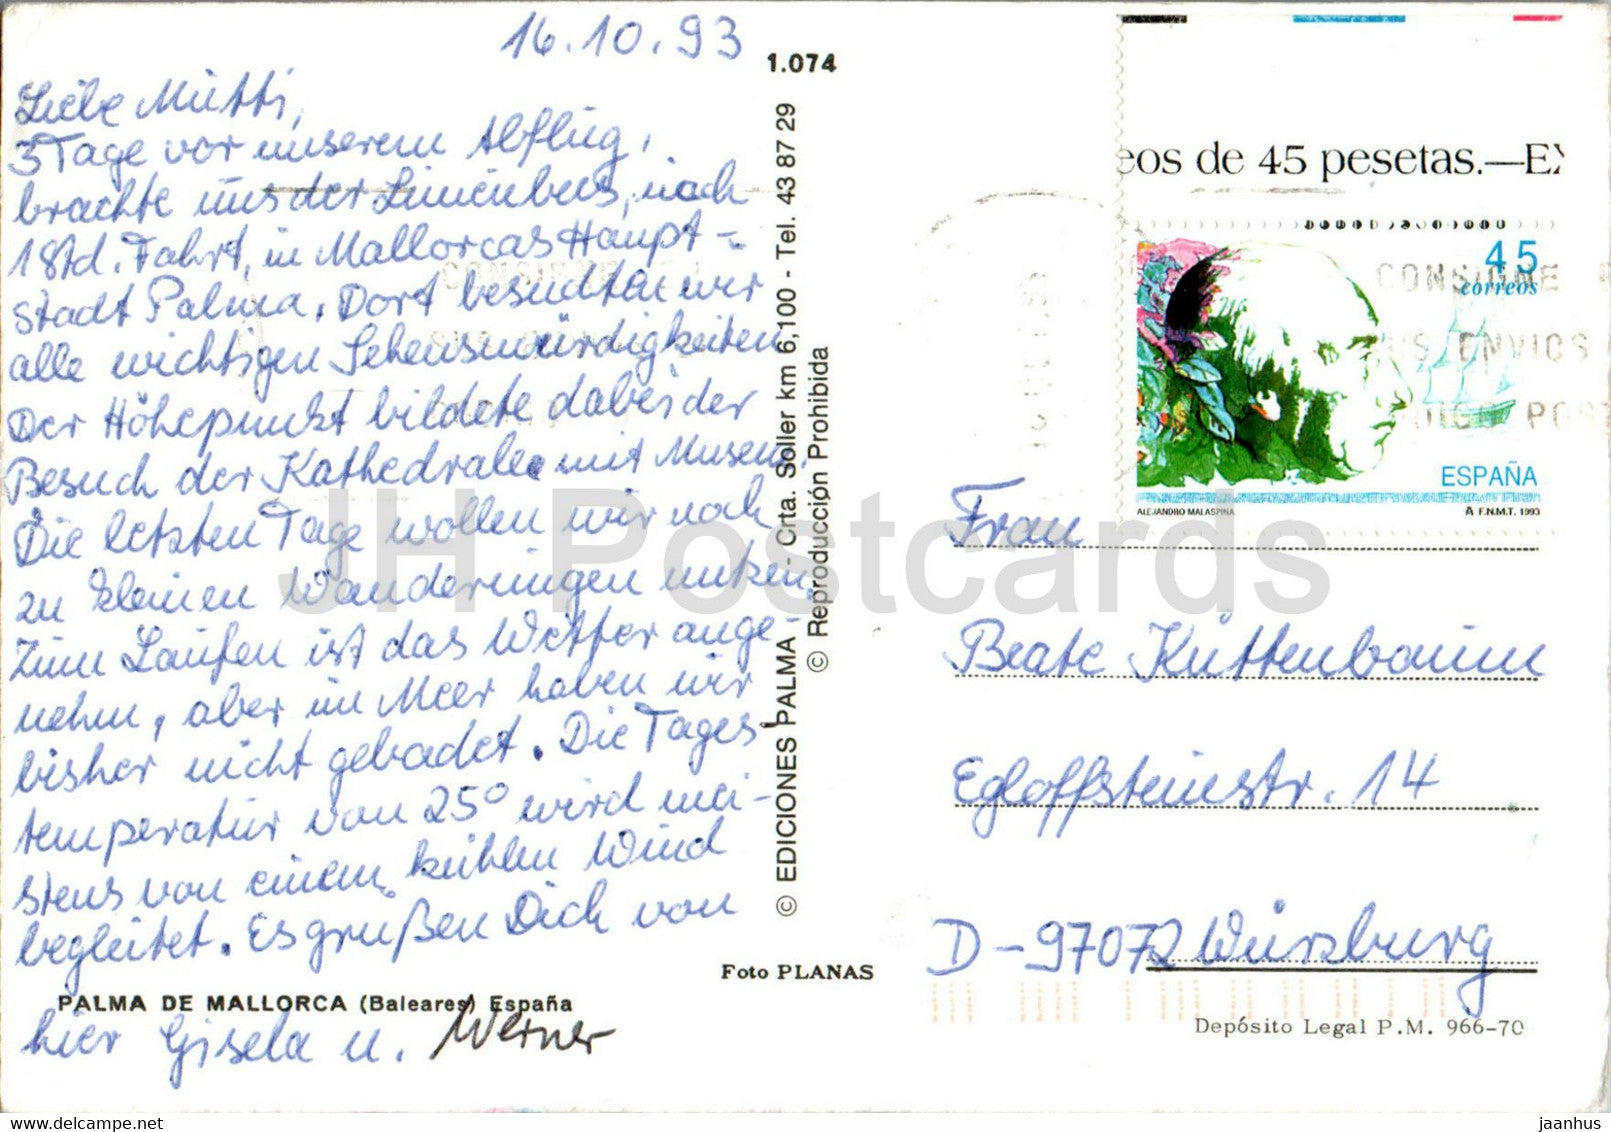 16.10.93
Liebe Mutti,
3 Tage vor unserem Abflug,
brachte uns der Linienbus, nach
1 Std. Fahrt, in Mallorcas Haupt-
stadt Palma. Dort besuchten wir
alle wichtigen Sehenswürdigkeiten
Der Höhepunkt bildete dabei der
Besuch der Kathedrale mit Museum.
Die letzten Tage wollen wir noch
zu kleinen Wanderungen nutzen.
Zum Laufen ist das Wetter ange-
nehm, aber im Meer haben wir
bisher nicht gebadet. Die Tages-
temperatur von 25° wird mei-
stens von einem kühlen Wind
begleitet. Es grüßen Dich von
PALMA DE MALLORCA (Baleares) España
hier Gisela u. Werner
1.074
© EDICIONES PALMA - Crta. Soller km 6,100 - Tel. 43 87 29
© Reproducción Prohibida
Foto PLANAS
eos de 45 pesetas.—EX
45
correos
ESPAÑA
ALEJANDRO MALASPINA
F.N.M.T. 1993
CONSIGNE
ENVIOS
Frau
Beate Küttenbaum
Egloffsteinstr. 14
D-97072 Würzburg
Depósito Legal P.M. 966-70
JH Postcards
jaanhus
www.delcampe.net